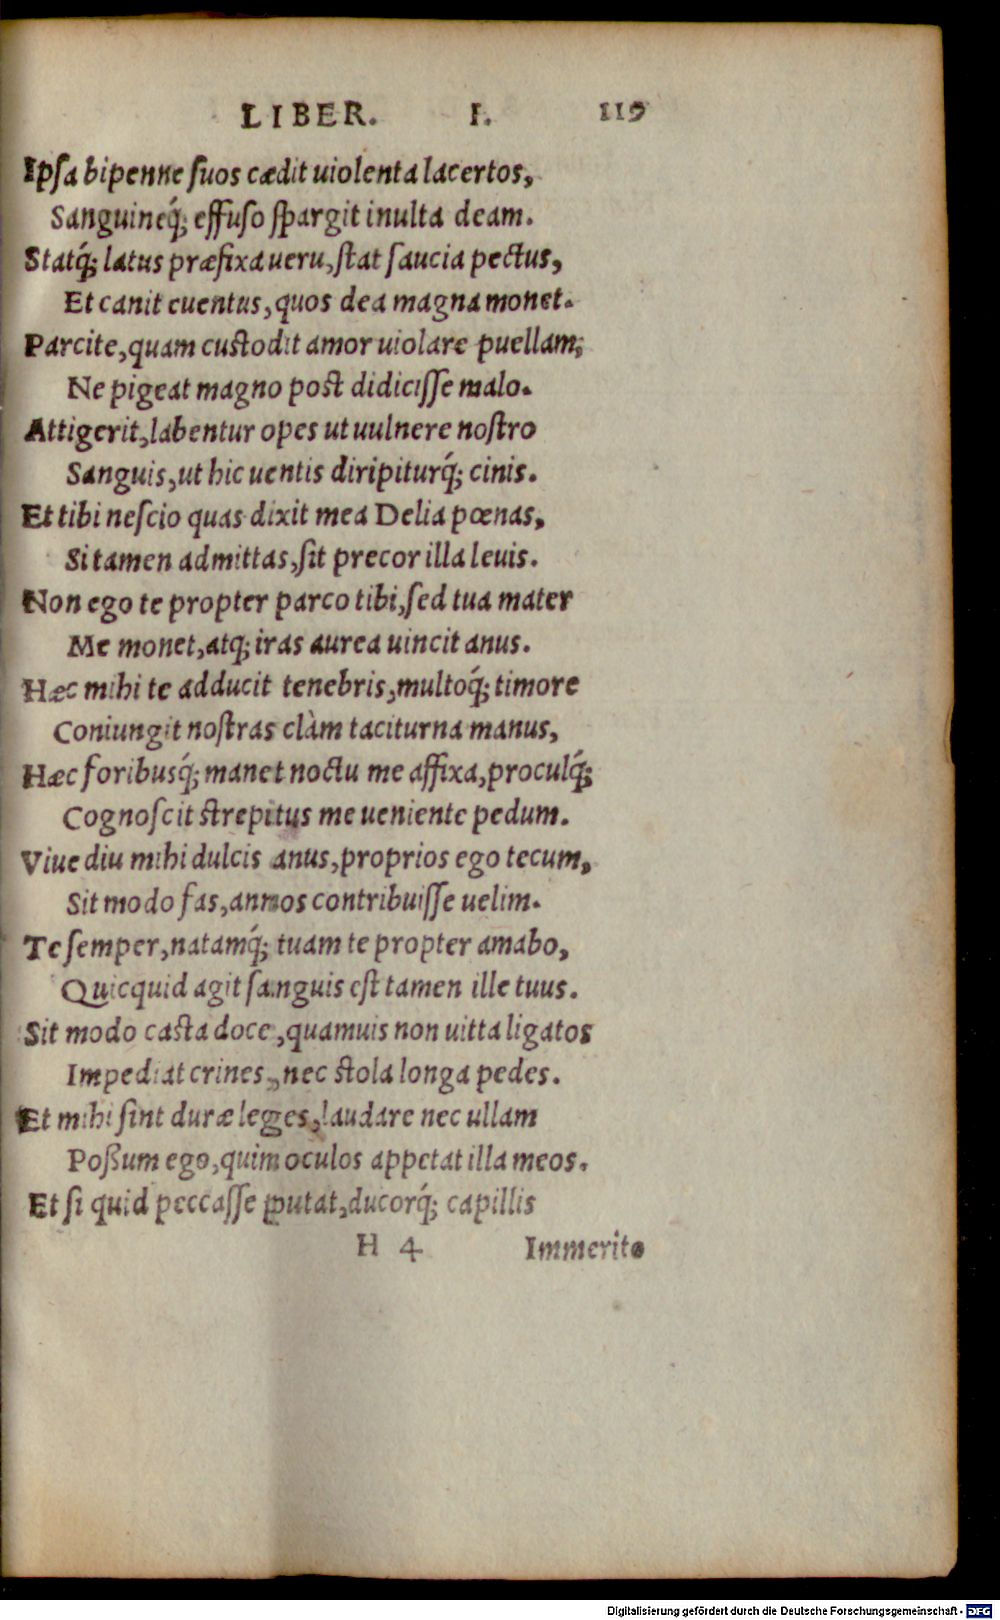 LIBER. I. 119
Ipsa bipenne suos cædit uiolenta lacertos,
Sanguineq́; effuso spargit inulta deam.
Statq́; latus præfixa ueru, stat saucia pectus,
Et canit euentus, quos dea magna monet.
Parcite, quam custodit amor uiolare puellam,
Ne pigeat magno post didicisse malo.
Attigerit, labentur opes ut uulnere nostro
Sanguis, ut hic uentis diripiturq́; cinis.
Et tibi nescio quas dixit mea Delia pœnas,
Si tamen admittas, sit precor illa leuis.
Non ego te propter parco tibi, sed tua mater
Me monet, atq; iras aurea uincit anus.
Hæc mihi te adducit tenebris, multoq́; timore
Coniungit nostras clàm taciturna manus,
Hæc foribusq́; manet noctu me affixa, proculq́;
Cognoscit strepitus me ueniente pedum.
Viue diu mihi dulcis anus, proprios ego tecum,
Sit modo fas, annos contribuisse uelim.
Te semper, natamq́; tuam te propter amabo,
Quicquid agit sanguis est tamen ille tuus.
Sit modo casta doce, quamuis non uitta ligatos
Impediat crines, nec stola longa pedes.
Et mihi sint duræ leges, laudare nec ullam
Possum ego, quim oculos appetat illa meos.
Et si quid peccasse putat, ducorq́; capillis
H 4 Immerito
Digitalisierung gefördert durch die Deutsche Forschungsgemeinschaft - DFG